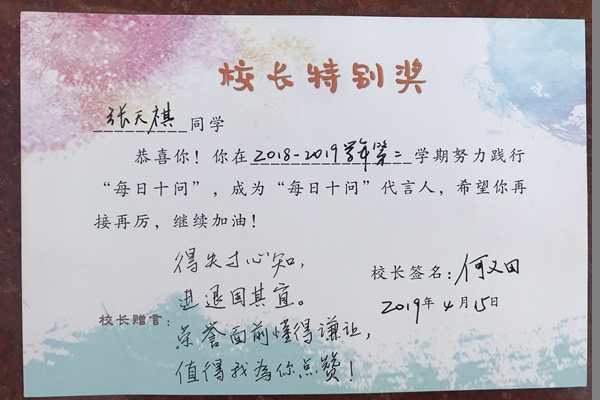 校长特别奖
张天祺同学
恭喜你！你在2018-2019学年第二学期努力践行
“每日十问”，成为“每日十问”代言人，希望你再
接再厉，继续加油！
得失寸心知，
进退因其宜。
荣誉面前懂得谦让，
值得我为你点赞！
校长赠言：
校长签名：何义田
2019年4月15日